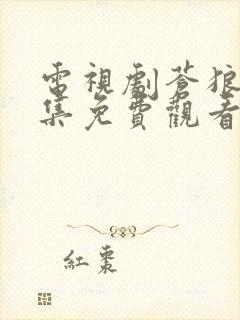 電視劇蒼狼
集免費觀看
紅棗